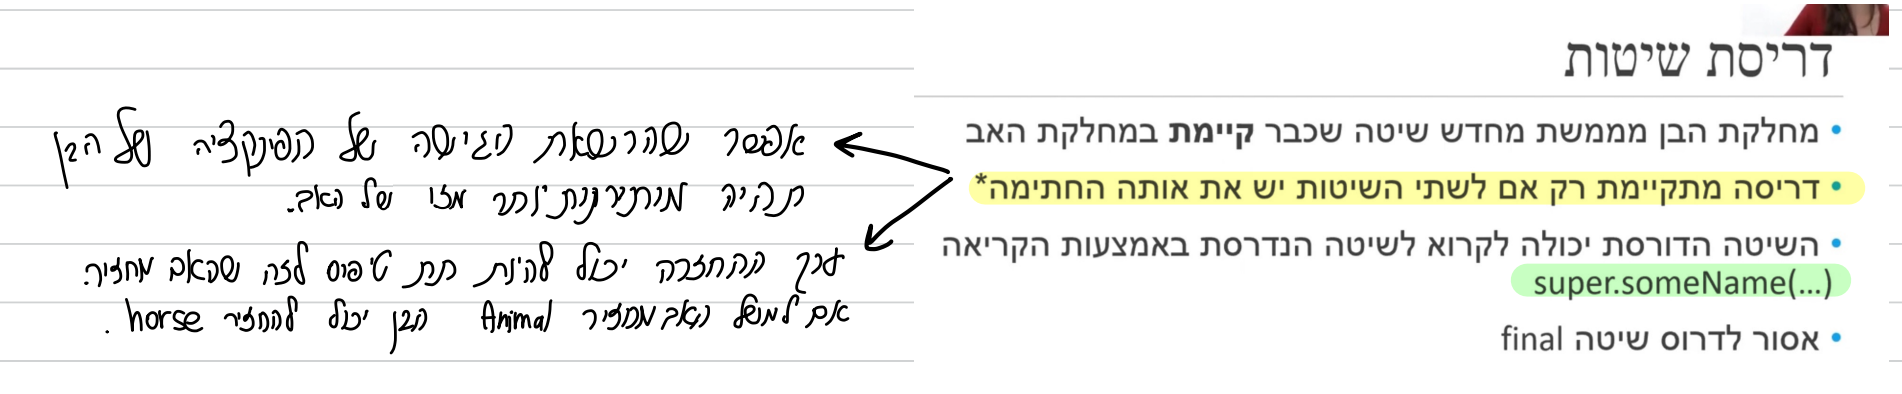 דריסת שיטות
• מחלקת הבן מממשת מחדש שיטה שכבר קיימת במחלקת האב
• דריסה מתקיימת רק אם לשתי השיטות יש את אותה החתימה*
• השיטה הדורסת יכולה לקרוא לשיטה הנדרסת באמצעות הקריאה
super.someName(...)
• אסור לדרוס שיטה final
אפשר שהרשאת הגישה של הפונקציה של הבן
תהיה מתירנית יותר מזו של האב.
ערך ההחזרה יכול להיות תת טיפוס לזה שהאב מחזיר.
אם למשל האב מחזיר Animal הבן יכול להחזיר horse.